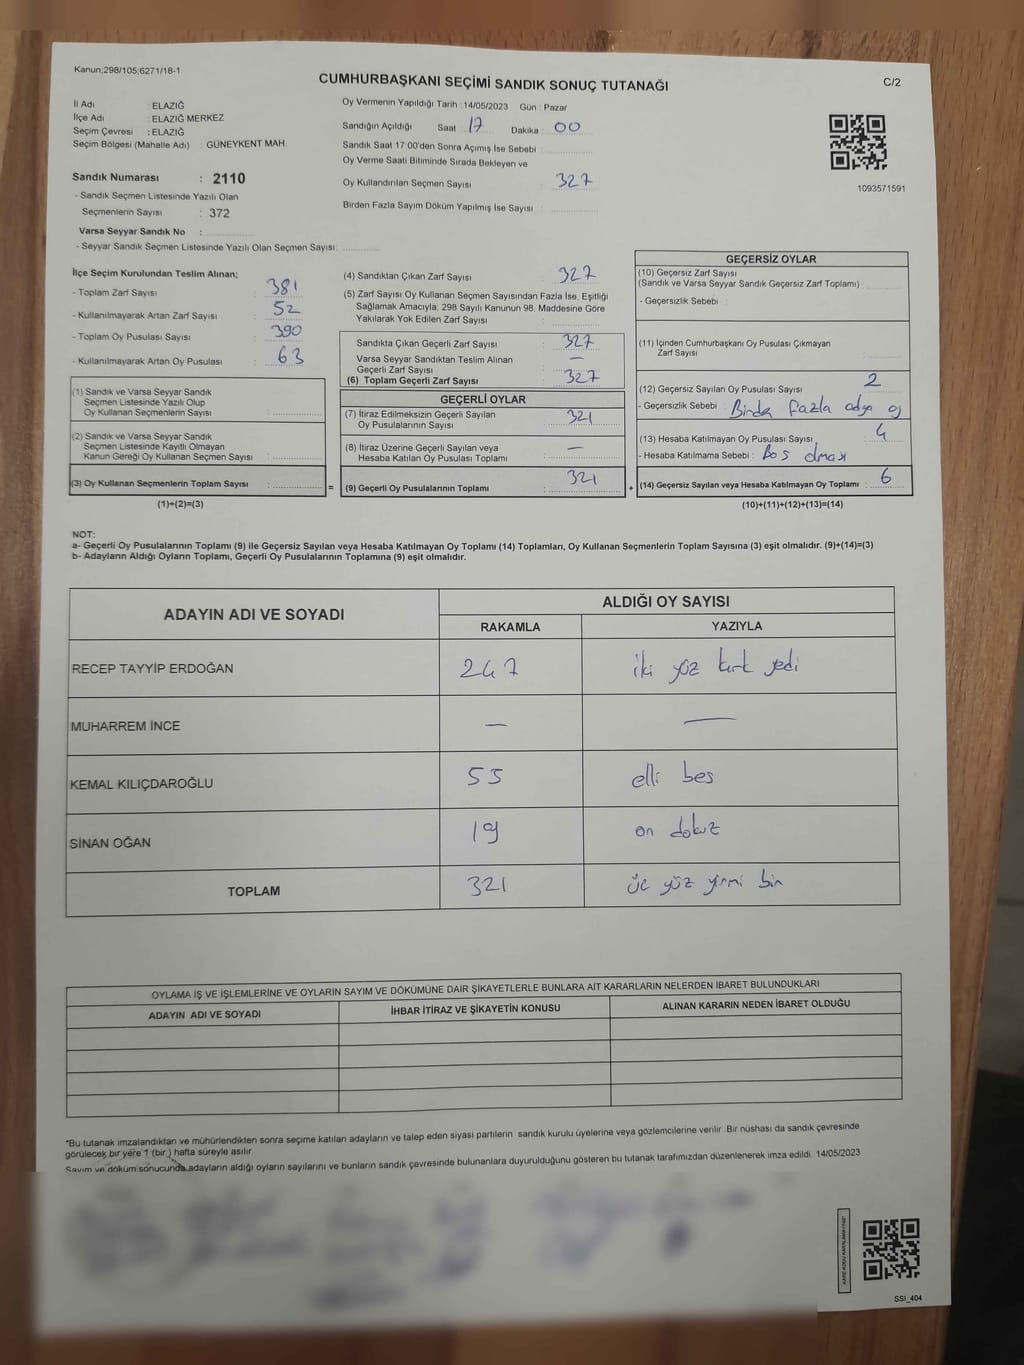 Kanun;298/105;6271/18-1
C/2
CUMHURBAŞKANI SEÇİMİ SANDIK SONUÇ TUTANAĞI
İl Adı : ELAZIĞ
İlçe Adı : ELAZIĞ MERKEZ
Seçim Çevresi : ELAZIĞ
Seçim Bölgesi (Mahalle Adı) : GÜNEYKENT MAH.
Sandık Numarası : 2110
- Sandık Seçmen Listesinde Yazılı Olan
Seçmenlerin Sayısı : 372
Varsa Seyyar Sandık No :
- Seyyar Sandık Seçmen Listesinde Yazılı Olan Seçmen Sayısı:
Oy Vermenin Yapıldığı Tarih : 14/05/2023 Gün : Pazar
Sandığın Açıldığı Saat 17 Dakika : 00
Sandık Saat 17:00'den Sonra Açımış İse Sebebi :
Oy Verme Saati Bitiminde Sırada Bekleyen ve
Oy Kullandırılan Seçmen Sayısı : 327
Birden Fazla Sayım Döküm Yapılmış İse Sayısı :
1093571591
İlçe Seçim Kurulundan Teslim Alınan;
- Toplam Zarf Sayısı : 381
- Kullanılmayarak Artan Zarf Sayısı : 52
- Toplam Oy Pusulası Sayısı : 390
- Kullanılmayarak Artan Oy Pusulası : 63
(1) Sandık ve Varsa Seyyar Sandık
Seçmen Listesinde Yazılı Olup
Oy Kullanan Seçmenlerin Sayısı :
(2) Sandık ve Varsa Seyyar Sandık
Seçmen Listesinde Kayıtlı Olmayan
Kanun Gereği Oy Kullanan Seçmen Sayısı :
(3) Oy Kullanan Seçmenlerin Toplam Sayısı :
(1)+(2)=(3)
=
(4) Sandıktan Çıkan Zarf Sayısı : 327
(5) Zarf Sayısı Oy Kullanan Seçmen Sayısından Fazla İse, Eşitliği
Sağlamak Amacıyla; 298 Sayılı Kanunun 98. Maddesine Göre
Yakılarak Yok Edilen Zarf Sayısı :
Sandıkta Çıkan Geçerli Zarf Sayısı : 327
Varsa Seyyar Sandıktan Teslim Alınan
Geçerli Zarf Sayısı : —
(6) Toplam Geçerli Zarf Sayısı : 327
GEÇERLİ OYLAR
(7) İtiraz Edilmeksizin Geçerli Sayılan
Oy Pusulalarının Sayısı : 321
(8) İtiraz Üzerine Geçerli Sayılan veya
Hesaba Katılan Oy Pusulası Toplamı : —
(9) Geçerli Oy Pusulalarının Toplamı : 321
+
GEÇERSİZ OYLAR
(10) Geçersiz Zarf Sayısı
(Sandık ve Varsa Seyyar Sandık Geçersiz Zarf Toplamı) :
- Geçersizlik Sebebi :
(11) İçinden Cumhurbaşkanı Oy Pusulası Çıkmayan
Zarf Sayısı :
(12) Geçersiz Sayılan Oy Pusulası Sayısı : 2
- Geçersizlik Sebebi : fazla
(13) Hesaba Katılmayan Oy Pusulası Sayısı : 4
- Hesaba Katılmama Sebebi : Bos olması
(14) Geçersiz Sayılan veya Hesaba Katılmayan Oy Toplamı : 6
(10)+(11)+(12)+(13)=(14)
NOT:
a- Geçerli Oy Pusulalarının Toplamı (9) ile Geçersiz Sayılan veya Hesaba Katılmayan Oy Toplamı (14) Toplamları, Oy Kullanan Seçmenlerin Toplam Sayısına (3) eşit olmalıdır. (9)+(14)=(3)
b- Adayların Aldığı Oyların Toplamı, Geçerli Oy Pusulalarının Toplamına (9) eşit olmalıdır.
ADAYIN ADI VE SOYADI
ALDIĞI OY SAYISI
RAKAMLA YAZIYLA
RECEP TAYYİP ERDOĞAN 247 iki yüz kırk yedi
MUHARREM İNCE — —
KEMAL KILIÇDAROĞLU 55 elli bes
SİNAN OĞAN 19 on dokuz
TOPLAM 321 üç yüz yirmi bir
OYLAMA İŞ VE İŞLEMLERİNE VE OYLARIN SAYIM VE DÖKÜMÜNE DAİR ŞİKAYETLERLE BUNLARA AİT KARARLARIN NELERDEN İBARET BULUNDUKLARI
ADAYIN ADI VE SOYADI İHBAR İTİRAZ VE ŞİKAYETİN KONUSU ALINAN KARARIN NEDEN İBARET OLDUĞU
*Bu tutanak imzalandıktan ve mühürlendikten sonra seçime katılan adayların ve talep eden siyasi partilerin sandık kurulu üyelerine veya gözlemcilerine verilir. Bir nüshası da sandık çevresinde
görülecek bir yere 1 (bir ) hafta süreyle asılır.
Sayım ve döküm sonucunda adayların aldığı oyların sayılarını ve bunların sandık çevresinde bulunanlara duyurulduğunu gösteren bu tutanak tarafımızdan düzenlenerek imza edildi. 14/05/2023
SSI_404